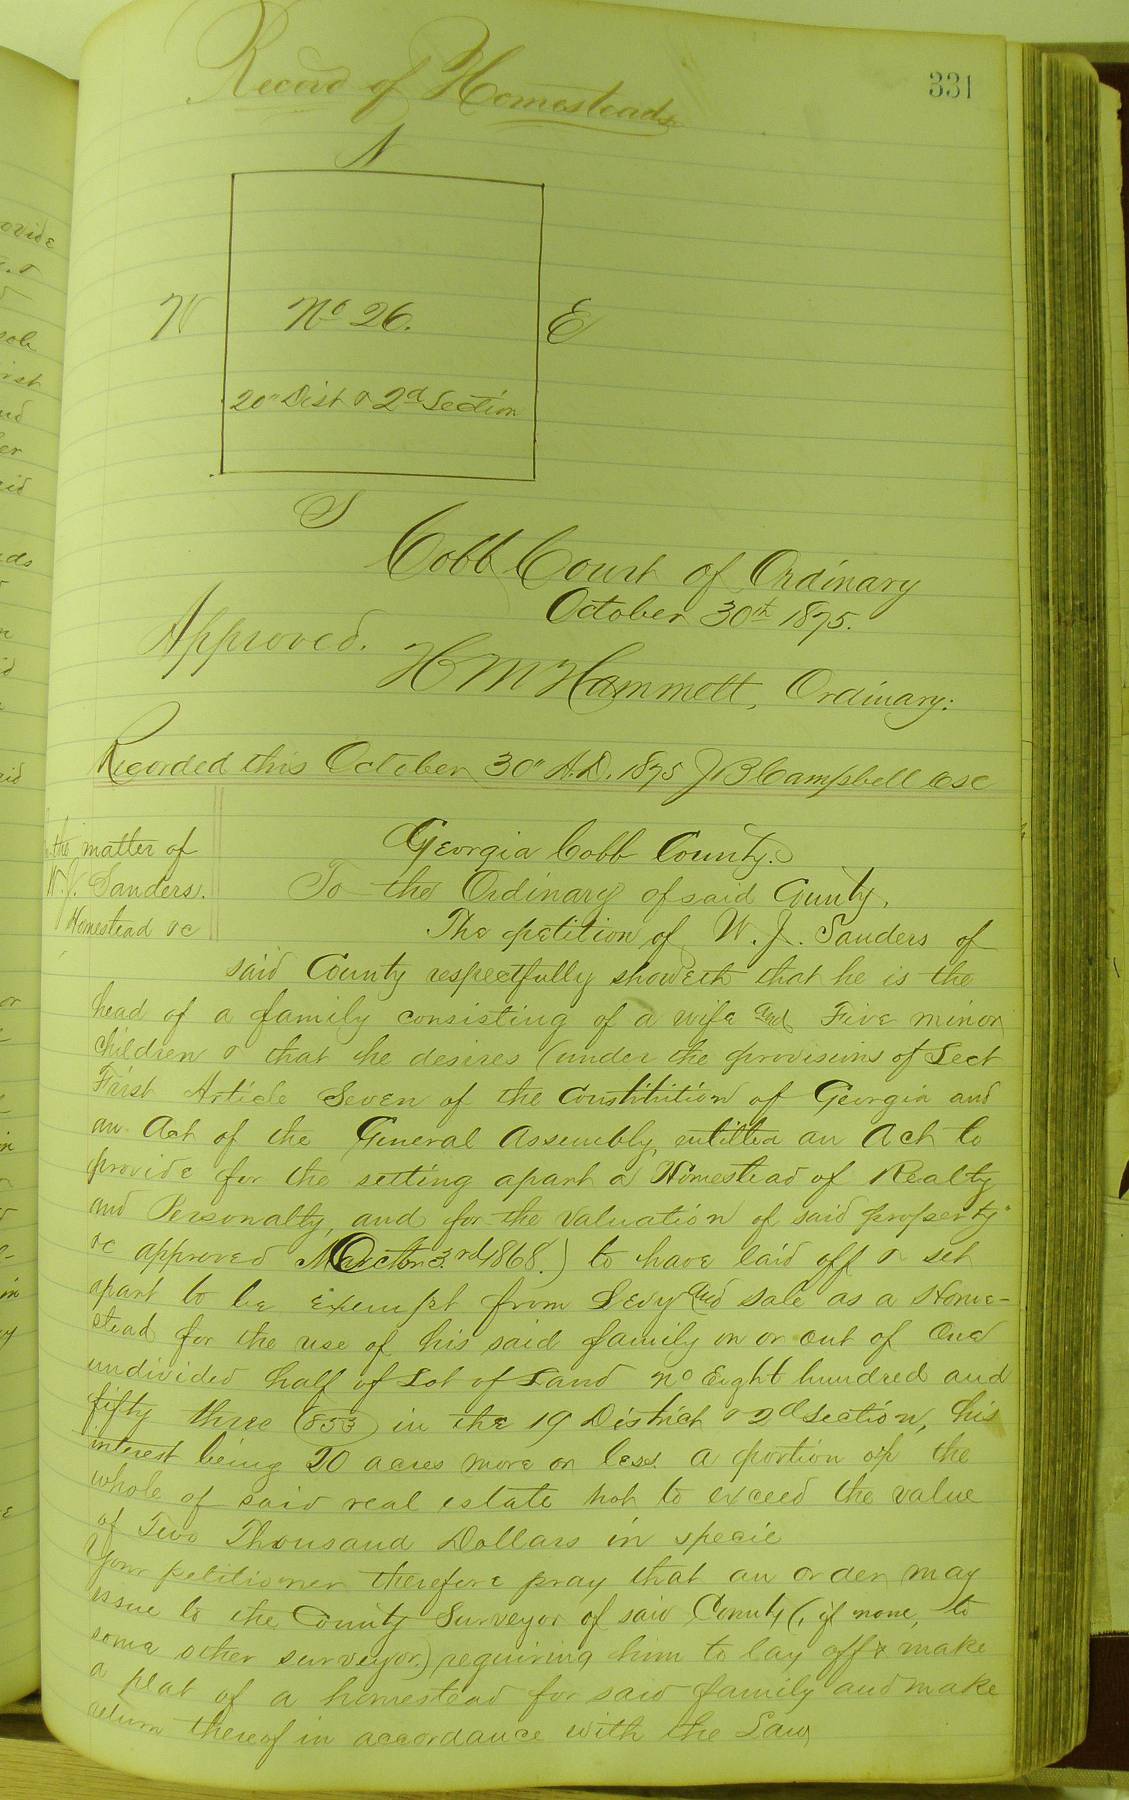 Record of Homesteads
331
N
W
No 26.
E
20" Dist & 2d Section
S
Cobb Court of Ordinary
October 30th 1875.
Approved.
H M Hammett, Ordinary.
Recorded this October 30" A.D. 1875 J B Campbell
the matter of
W. J. Sanders.
Homestead &c
Georgia Cobb County.
To the Ordinary of said County,
The petition of W. J. Sanders of
said County respectfully showeth that he is the
head of a family consisting of a wife and Five minor
children & that he desires (under the provisions of Sect
First Article Seven of the Constitution of Georgia and
an Act of the General Assembly, entitled an Act to
provide for the setting apart a Homestead of Realty
and Personalty, and for the valuation of said property"
&c approved 3rd 1868.) to have laid off & set
apart to be exempt from Levy and Sale as a Home-
stead for the use of his said family on or out of One
undivided half of Lot of Land No Eight hundred and
fifty three (853) in the 19 District & 2d Section, his
interest being 20 acres more or less. a portion or the
whole of said real estate not to exceed the value
of Two Thousand Dollars in specie
Your petitioner therefore pray that an order may
issue to the County Surveyor of said County (, if none, to
some other surveyor.) requiring him to lay off & make
a plat of a homestead for said family and make
return thereof in accordance with the Law,